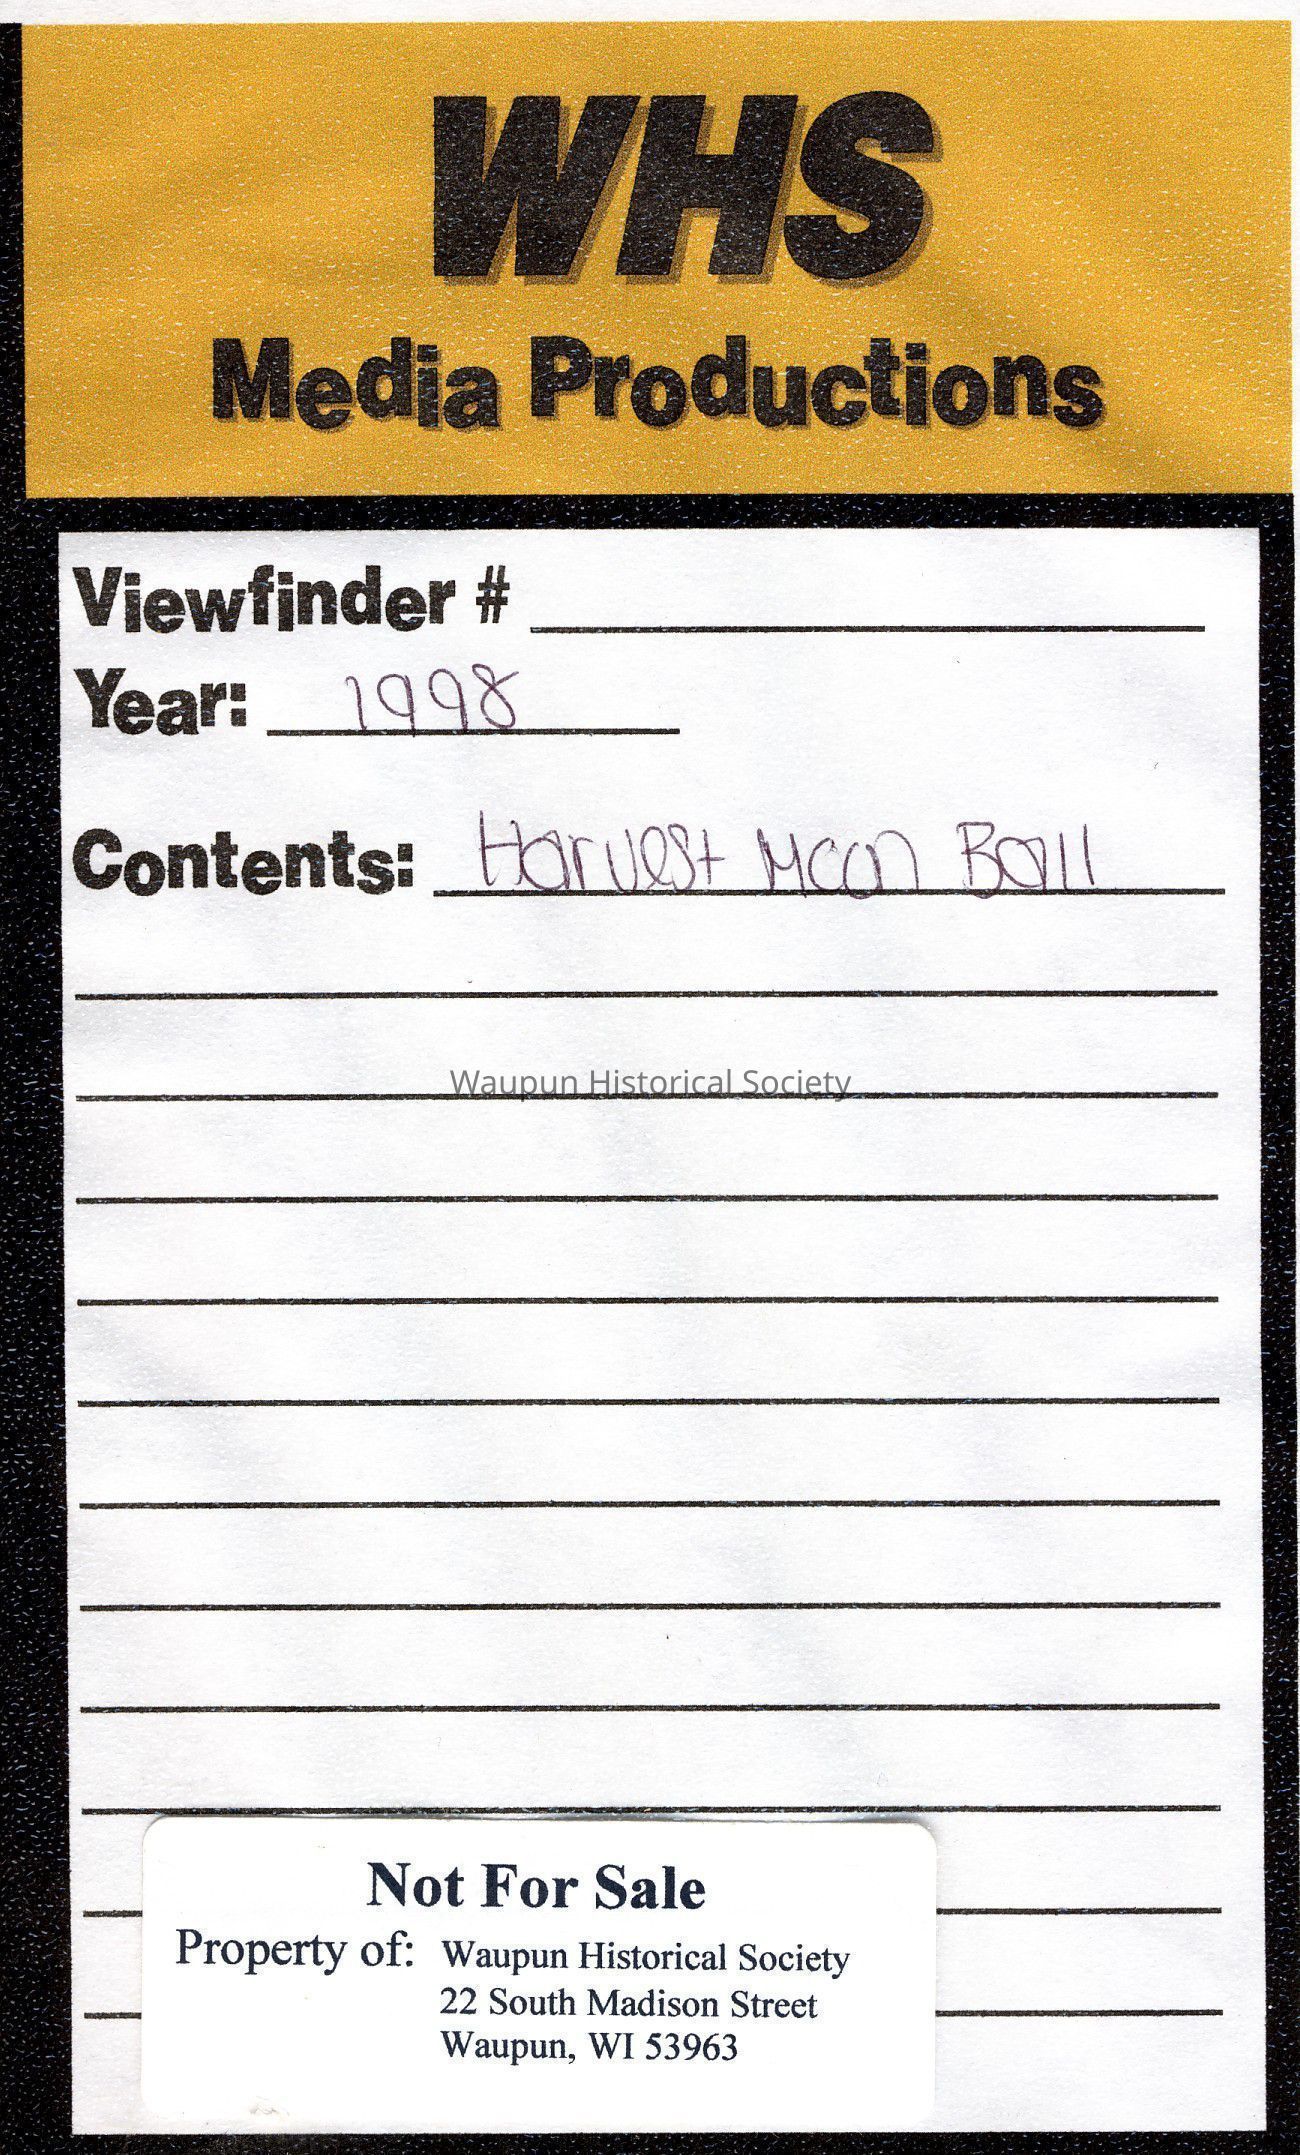 WHS
Media Productions
Viewfinder #
Year: 1998
Contents: Harvest Moon Ball
Waupun Historical Society
Not For Sale
Property of: Waupun Historical Society
22 South Madison Street
Waupun, WI 53963